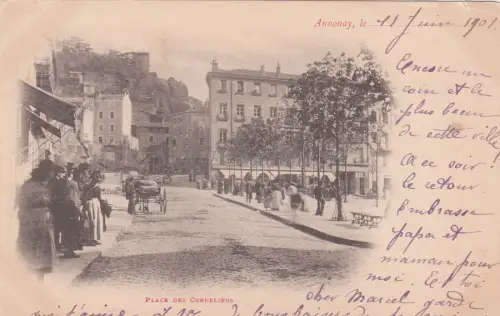 Annonay, le 11 Juin 1901.
Encore un
coin et le
plus beau
de cette ville
A ce soir!
le retour
Embrasse
papa et
maman pour
moi. Et toi
cher Marcel garde
PLACE DES CORDELIERS